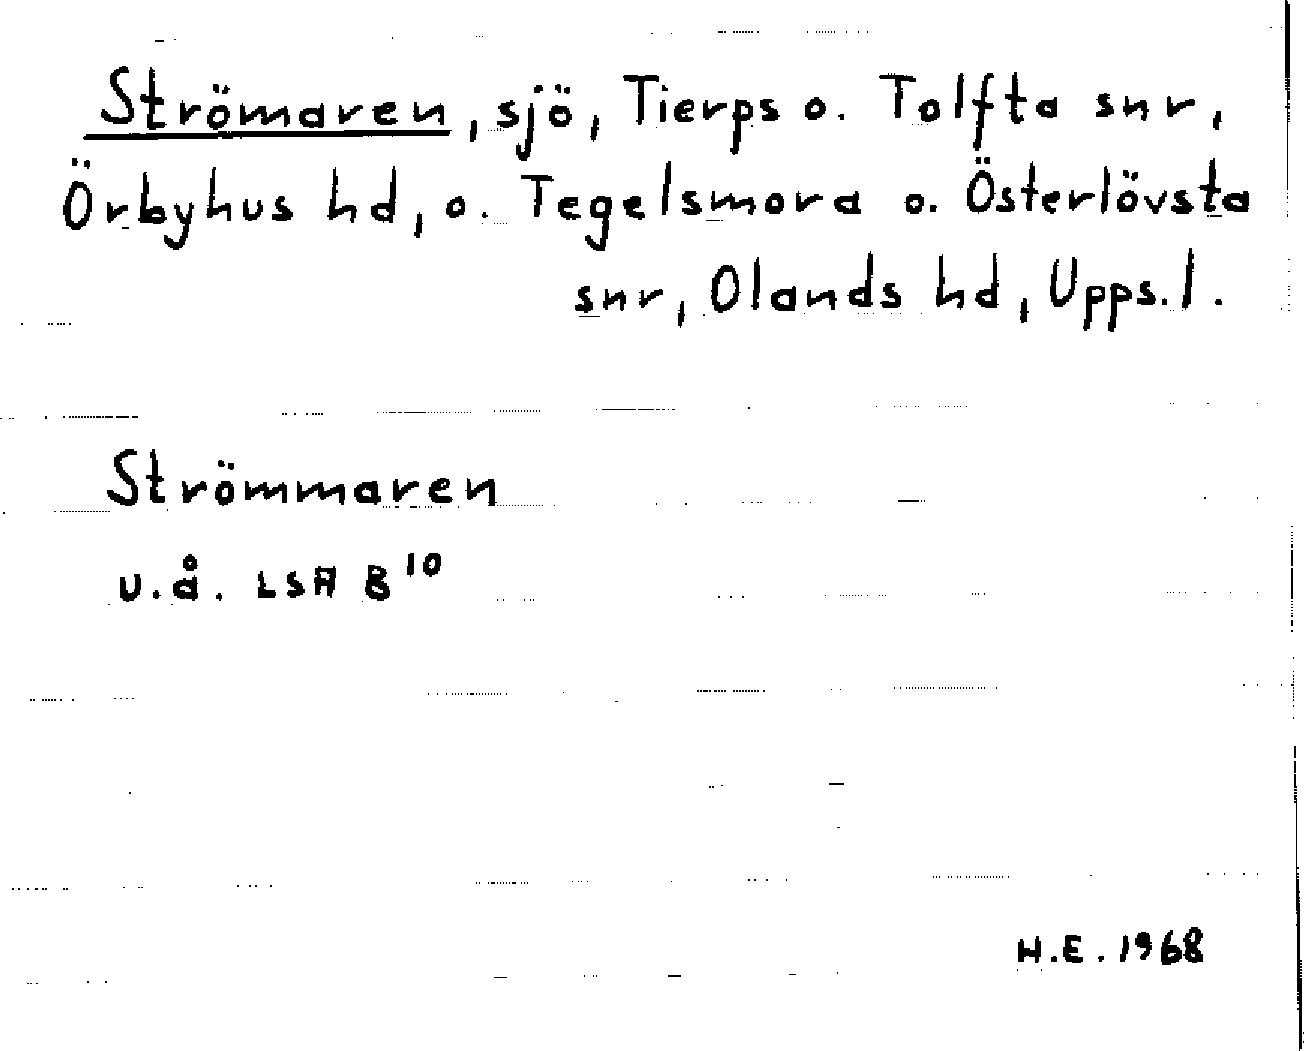 Strömaren, sjö, Tierps o. Tolfta snr,
Örbyhus hd, o. Tegelsmora o. Österlövsta
snr, Olands hd, Upps. l.
Strömmaren
u.å. LSA B¹⁰
H.E. 1968